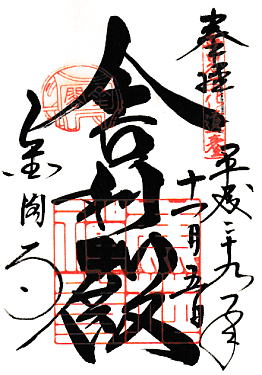 奉拝
平成二十九年
十一月五日
舎利殿
金閣寺